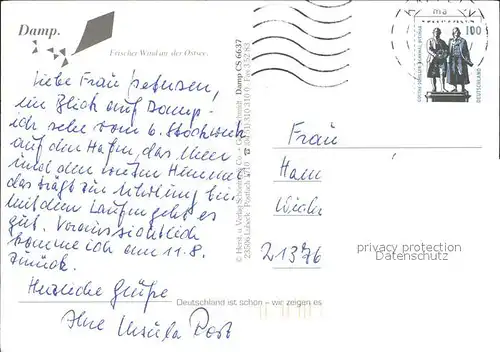 Damp.
Frischer Wind an der Ostsee.
Liebe Frau Petersen,
ein Blick auf Damp -
ich sehe vom 6. Stockwerk
auf den Hafen, das Meer
und den weiten Himmel
das trägt zur Erholung bei.
mit dem Laufen geht es
gut. Voraussichtlich
komme ich am 11.8.
zurück.
Herzliche Grüße
Ihre Ursula Post
Damp CS 6637
100
DEUTSCHLAND
Frau
21376
privacy protection
Datenschutz
Deutschland ist schön – wir zeigen es